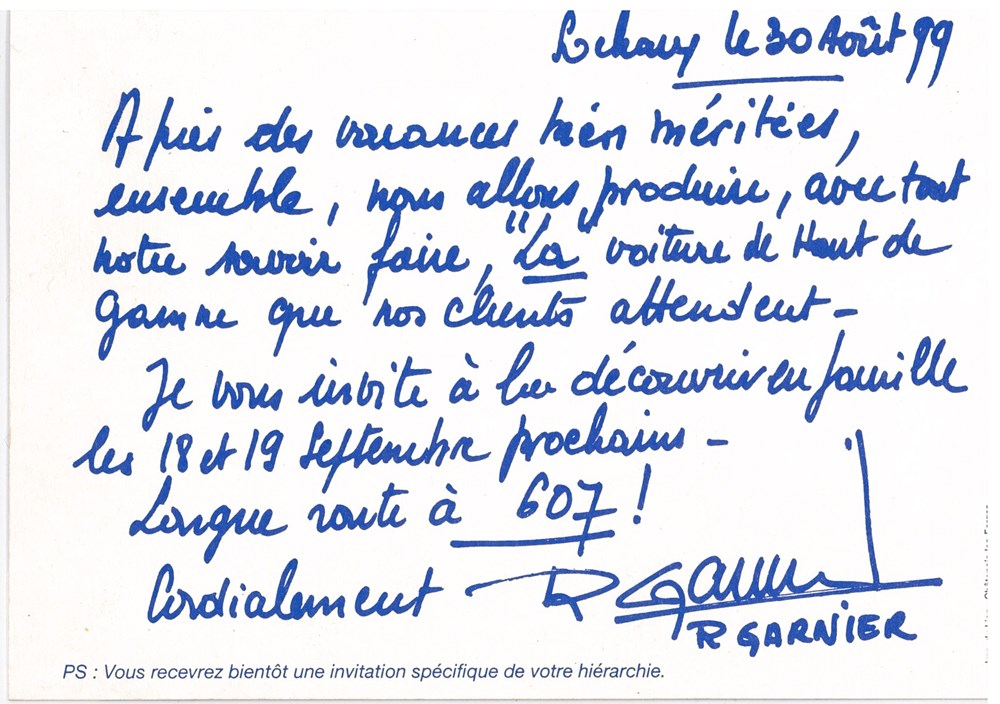 Sochaux le 30 Août 99
Après des vacances bien méritées,
ensemble, nous allons produire, avec tout
notre savoir faire, "La" voiture de Haut de
Gamme que nos clients attendent -
Je vous invite à la découvrir en famille
les 18 et 19 Septembre prochains -
Longue route à 607 !
Cordialement R Garnier
R GARNIER
PS : Vous recevrez bientôt une invitation spécifique de votre hiérarchie.